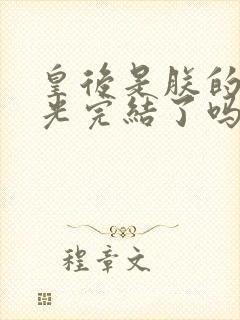 皇後是朕的
光完結了嗎
程章文